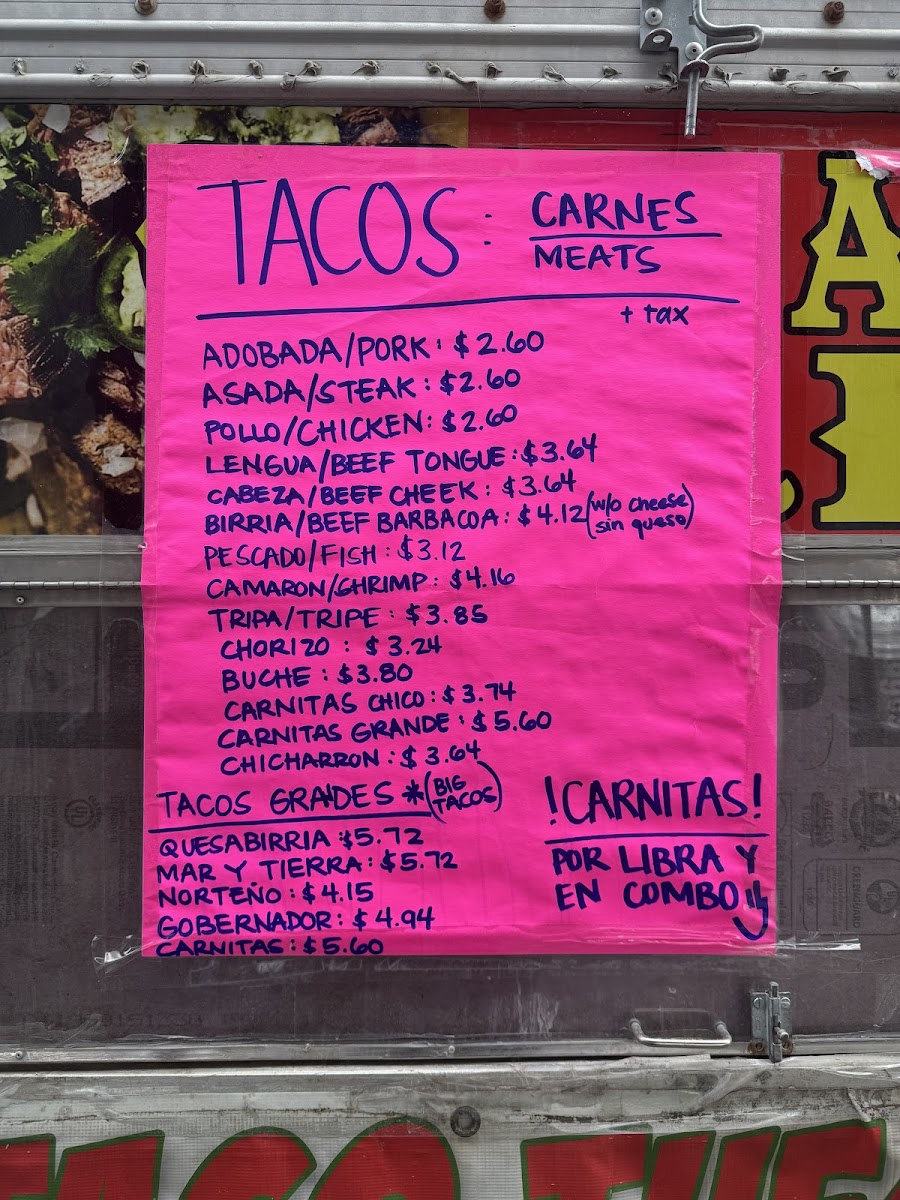 TACOS: CARNES
MEATS
+ tax
ADOBADA/PORK: $2.60
ASADA/STEAK: $2.60
POLLO/CHICKEN: $2.60
LENGUA/BEEF TONGUE: $3.64
CABEZA/BEEF CHEEK: $3.64
BIRRIA/BEEF BARBACOA: $4.12 (w/o cheese
sin queso)
PESCADO/FISH: $3.12
CAMARON/SHRIMP: $4.16
TRIPA/TRIPE: $3.85
CHORIZO: $3.24
BUCHE: $3.80
CARNITAS CHICO: $3.74
CARNITAS GRANDE: $5.60
CHICHARRON: $3.64
TACOS GRANDES *(BIG
TACOS)
QUESABIRRIA: $5.72
MAR Y TIERRA: $5.72
NORTEÑO: $4.15
GOBERNADOR: $4.94
CARNITAS: $5.60
!CARNITAS!
POR LIBRA Y
EN COMBO
TACO